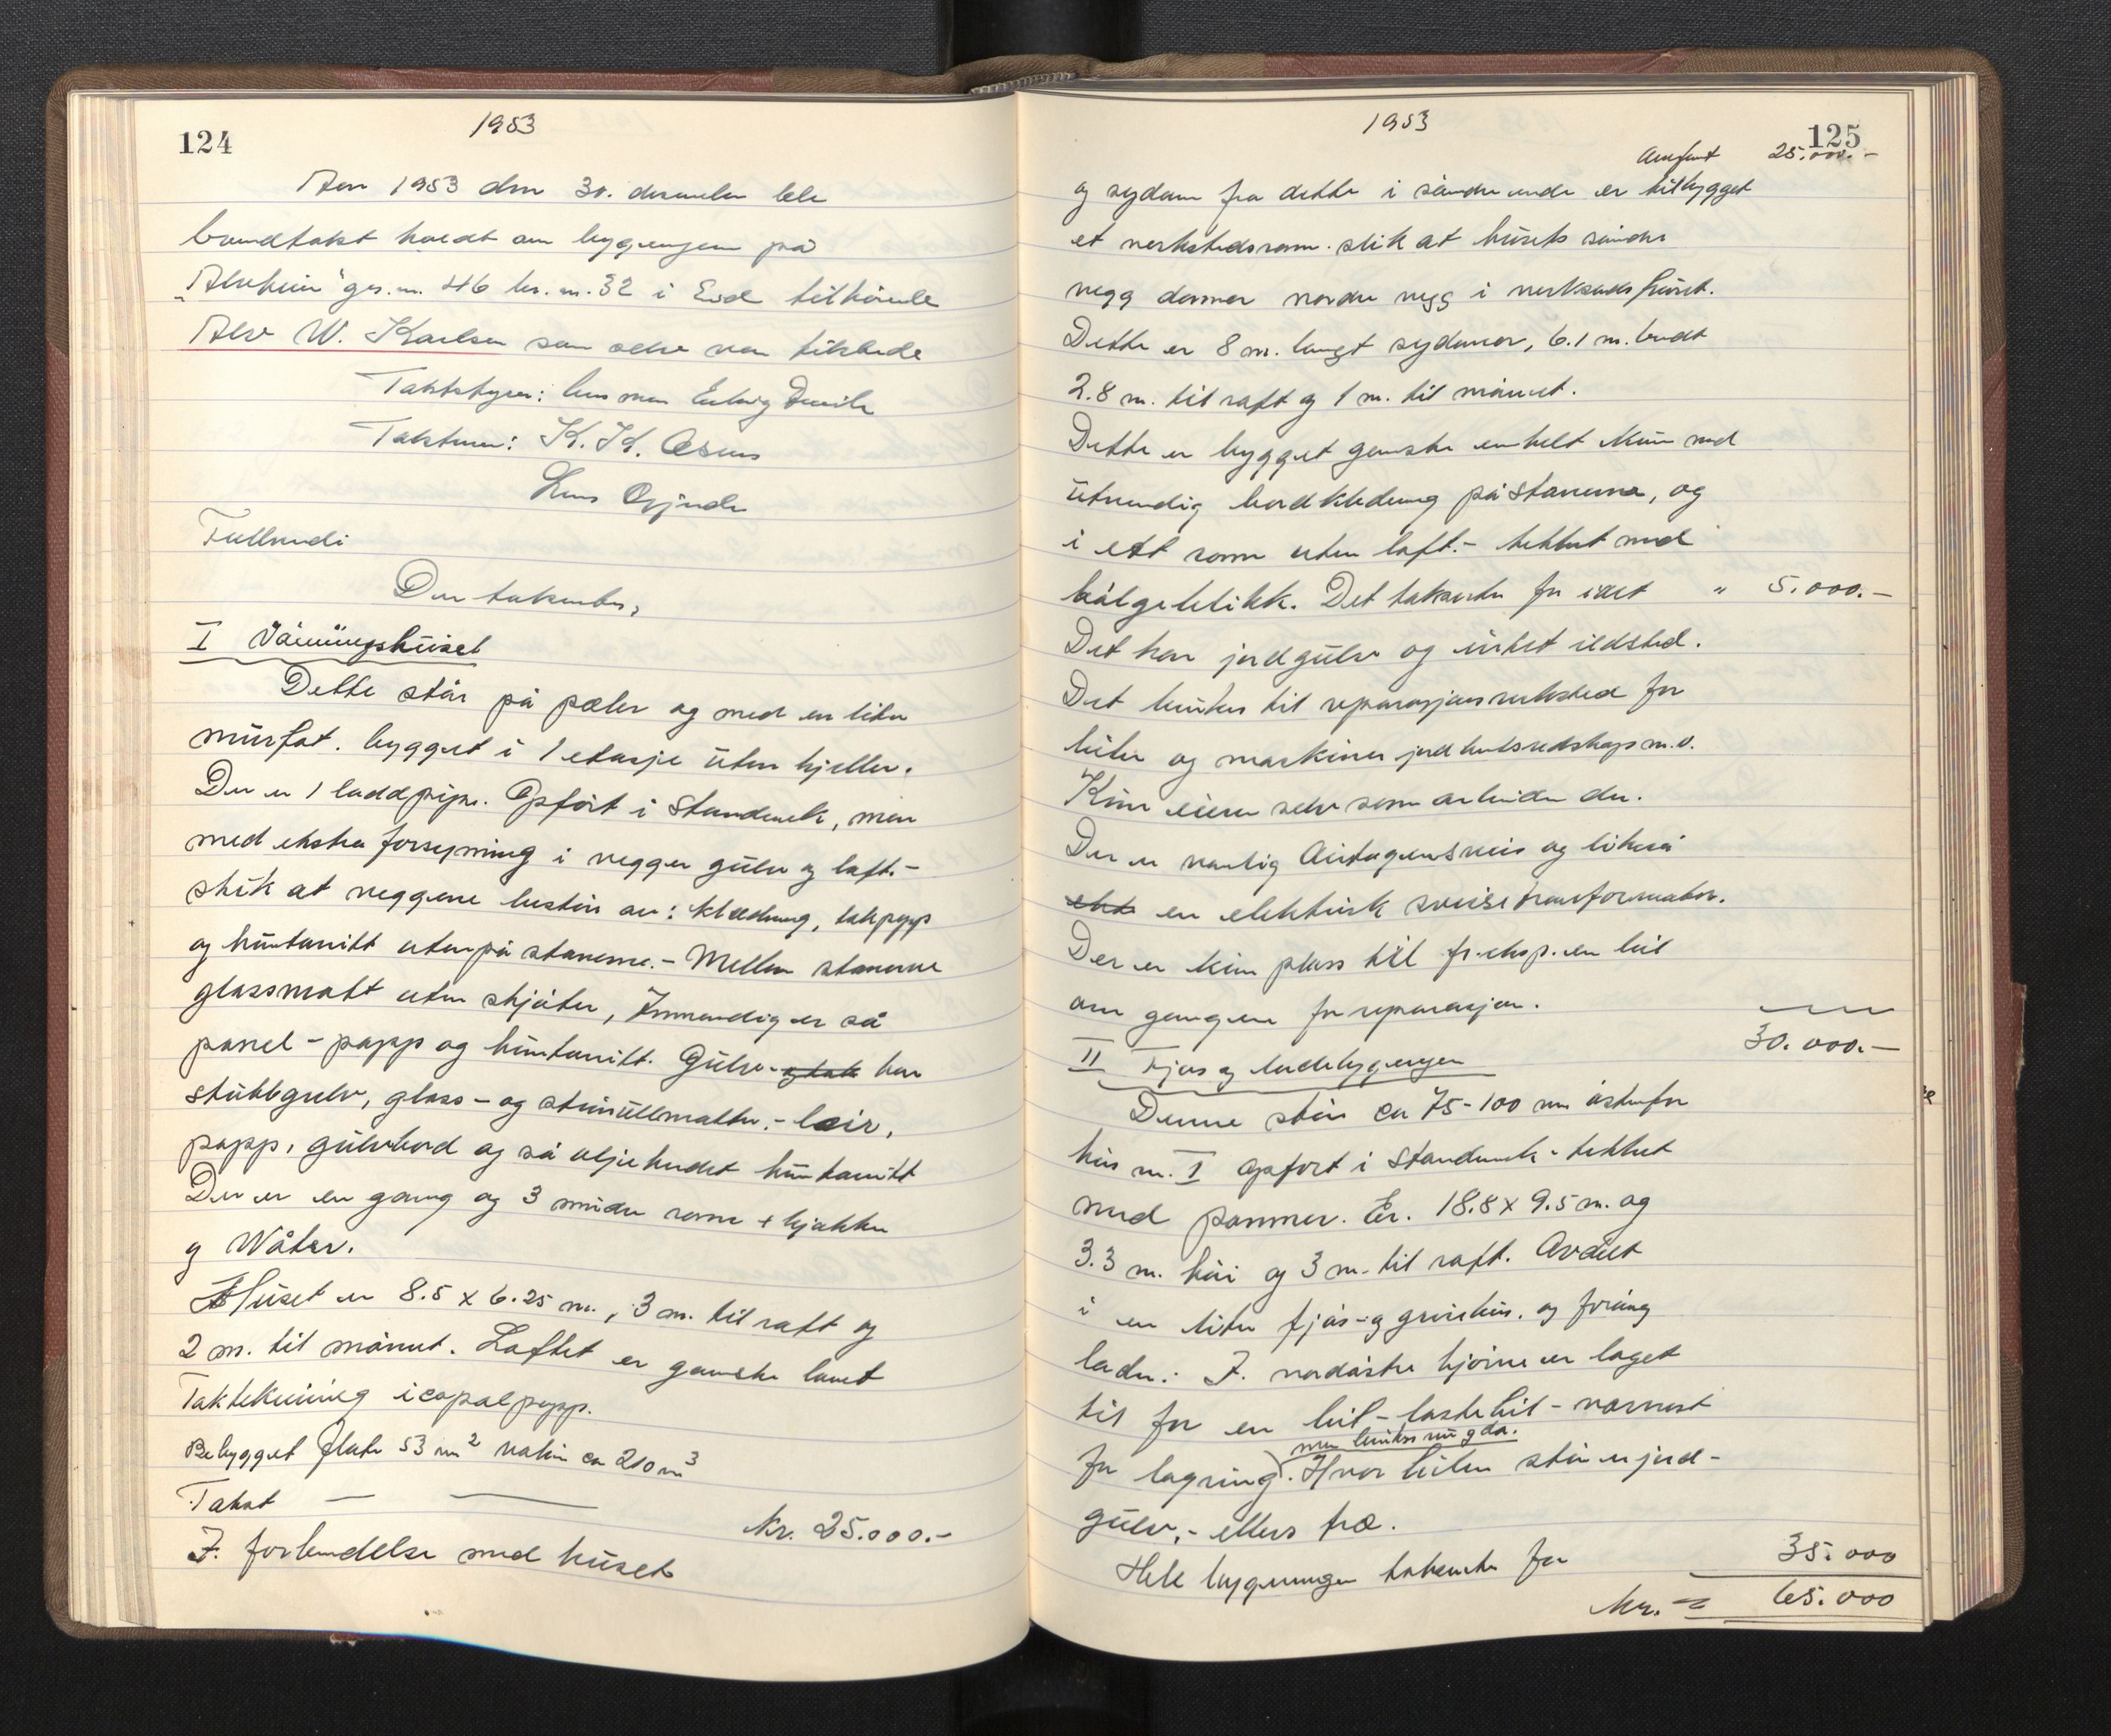 124
1953
Aar 1953 den 30. desember ble
branntakst holdt om bygningen på
"Alvheim" grs. nr. 46 br. nr. 32 i Eid tilhørende
Alv W. Karlsen som selv var tilstede
Takstbestyrer: lensmann
Takstmenn: K. K.
Lars
Fullmndi
Der takseres,
I Våningshuset
Dette står på pæler og med en liten
murfot. bygget i 1 etasje uten kjeller.
Der er 1 laddpipe. Opført i standverk, men
med ekstra forsyning i vegger gulv og loft.-
slik at veggene består av: kledning, takpapp
og huntonitt utenpå stanerne.- Mellem stanerne
glassmatt uten skjøter, Innvendig er så
panel - papp og huntonitt. Gulv og tak har
stubbgulv, glass- og steinullmatter,- leir,
papp, gulvbord og så oljeherdet huntonitt
Der er en gang og 3 mindre rom + kjøkken
og Water.
Huset er 8.5 x 6.25 m., 3 m. til raft og
2 m. til mønnet. Loftet er ganske lavt
Taktekning icopalpapp.
Bebygget flate 53 m² volum ca 210 m³
Takst — — Kr. 25.000.-
I forbindelse med huset
1953
125
Overført 25.000.-
og sydover fra dette i søndre ende er tilbygget
et verkstedsrom. slik at husets søndre
vegg danner nordre vegg i verkstedshuset.
Dette er 8 m. langt sydover, 6.1 m. bredt
2.8 m. til raft og 1 m. til mønnet.
Dette er bygget ganske enkelt kun med
utvendig bordkledning på stanerne, og
i ett rom uten loft.- tekket med
bølgeblikk. Det takseres for " 5.000.-
Det har jordgulv og intet ildsted.
Det brukes til reparasjonsverksted for
biler og maskiner jordbruksredskap m.v.
Kun eieren selv som arbeider der.
Der er vanlig og likeså
en elektrisk sveisetransformator.
Der er kun plass til f.eks. en bil
om gangen for reparasjon.
30.000.-
II Fjøs og ladebygningen
Denne står ca 75-100 m østenfor
hus nr. I opført i standverk - tekket
med panner. Er. 18.8 x 9.5 m. og
3.3 m. høi og 3 m. til raft. Avdelt
i en liten fjøs- og grisehus. og foring
lader.: I nordøstre hjørne er laget
til for en bil - lastebil - nærmest
men brukes nu og da.
for lagring. Hvor bilen står er jord-
gulv,- ellers træ.
Hele bygningen takseres for 35.000
Kr. = 65.000